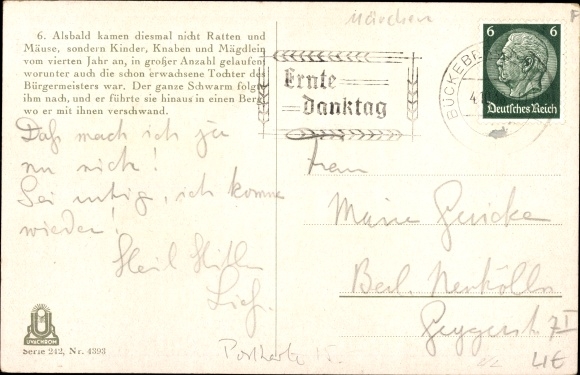 Märchen
6. Alsbald kamen diesmal nicht Ratten und
Mäuse, sondern Kinder, Knaben und Mägdlein
vom vierten Jahr an, in großer Anzahl gelaufen,
worunter auch die schon erwachsene Tochter des
Bürgermeisters war. Der ganze Schwarm folgte
ihm nach, und er führte sie hinaus in einen Berg,
wo er mit ihnen verschwand.
Ernte
Danktag
BÜCKEBE
6 6
Deutsches Reich
Daß mach ich ja
nu nich!
Sei ruhig, ich komme
wieder!
Heil Hitler
Frau
Marie Guicke
Berl. Neukölln
7I
UVACHROM
Serie 242, Nr. 4393
Postkarte 15.
4E